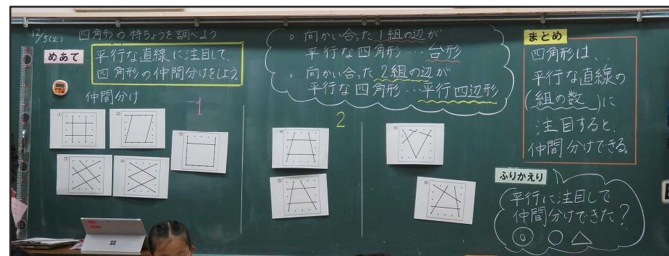 12/5(火) 四角形の特ちょうを調べよう
めあて
平行な直線に注目して、
四角形の仲間分けをしよう。
仲間分け
1
2
。向かい合った1組の辺が
平行な四角形…台形
。向かい合った2組の辺が
平行な四角形…平行四辺形
まとめ
四角形は、
平行な直線の
(組の数)に
注目すると、
仲間分けできる。
ふりかえり
平行に注目して
仲間分けできた?
◎ ○ △